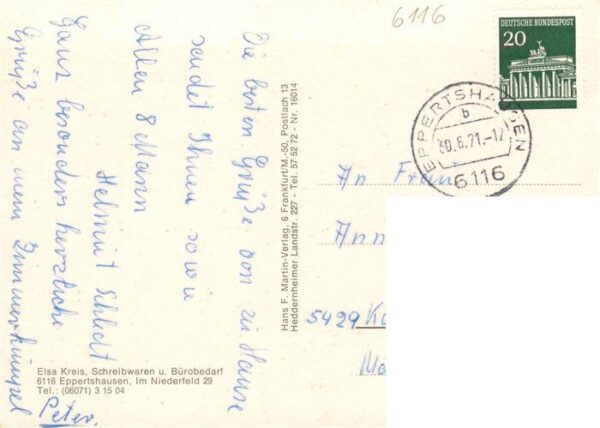 6116
DEUTSCHE BUNDESPOST
20
EPPERTSHAUSEN
b
30.6.71.-17
6116
Die besten Grüße von zu Hause
sendet Ihnen sowie
Allen 8 Mann
Helmut Schledt
Ganz besonders herzliche
Grüße an mein Zimmerkümpel
Peter.
Hans F. Martin-Verlag, 6 Frankfurt/M.-50, Postfach 13
Heddernheimer Landstr. 227 - Tel. 57 52 72 - Nr. 16014
An
Ann
5429
Elsa Kreis, Schreibwaren u. Bürobedarf
6116 Eppertshausen, Im Niederfeld 29
Tel.: (06071) 3 15 04